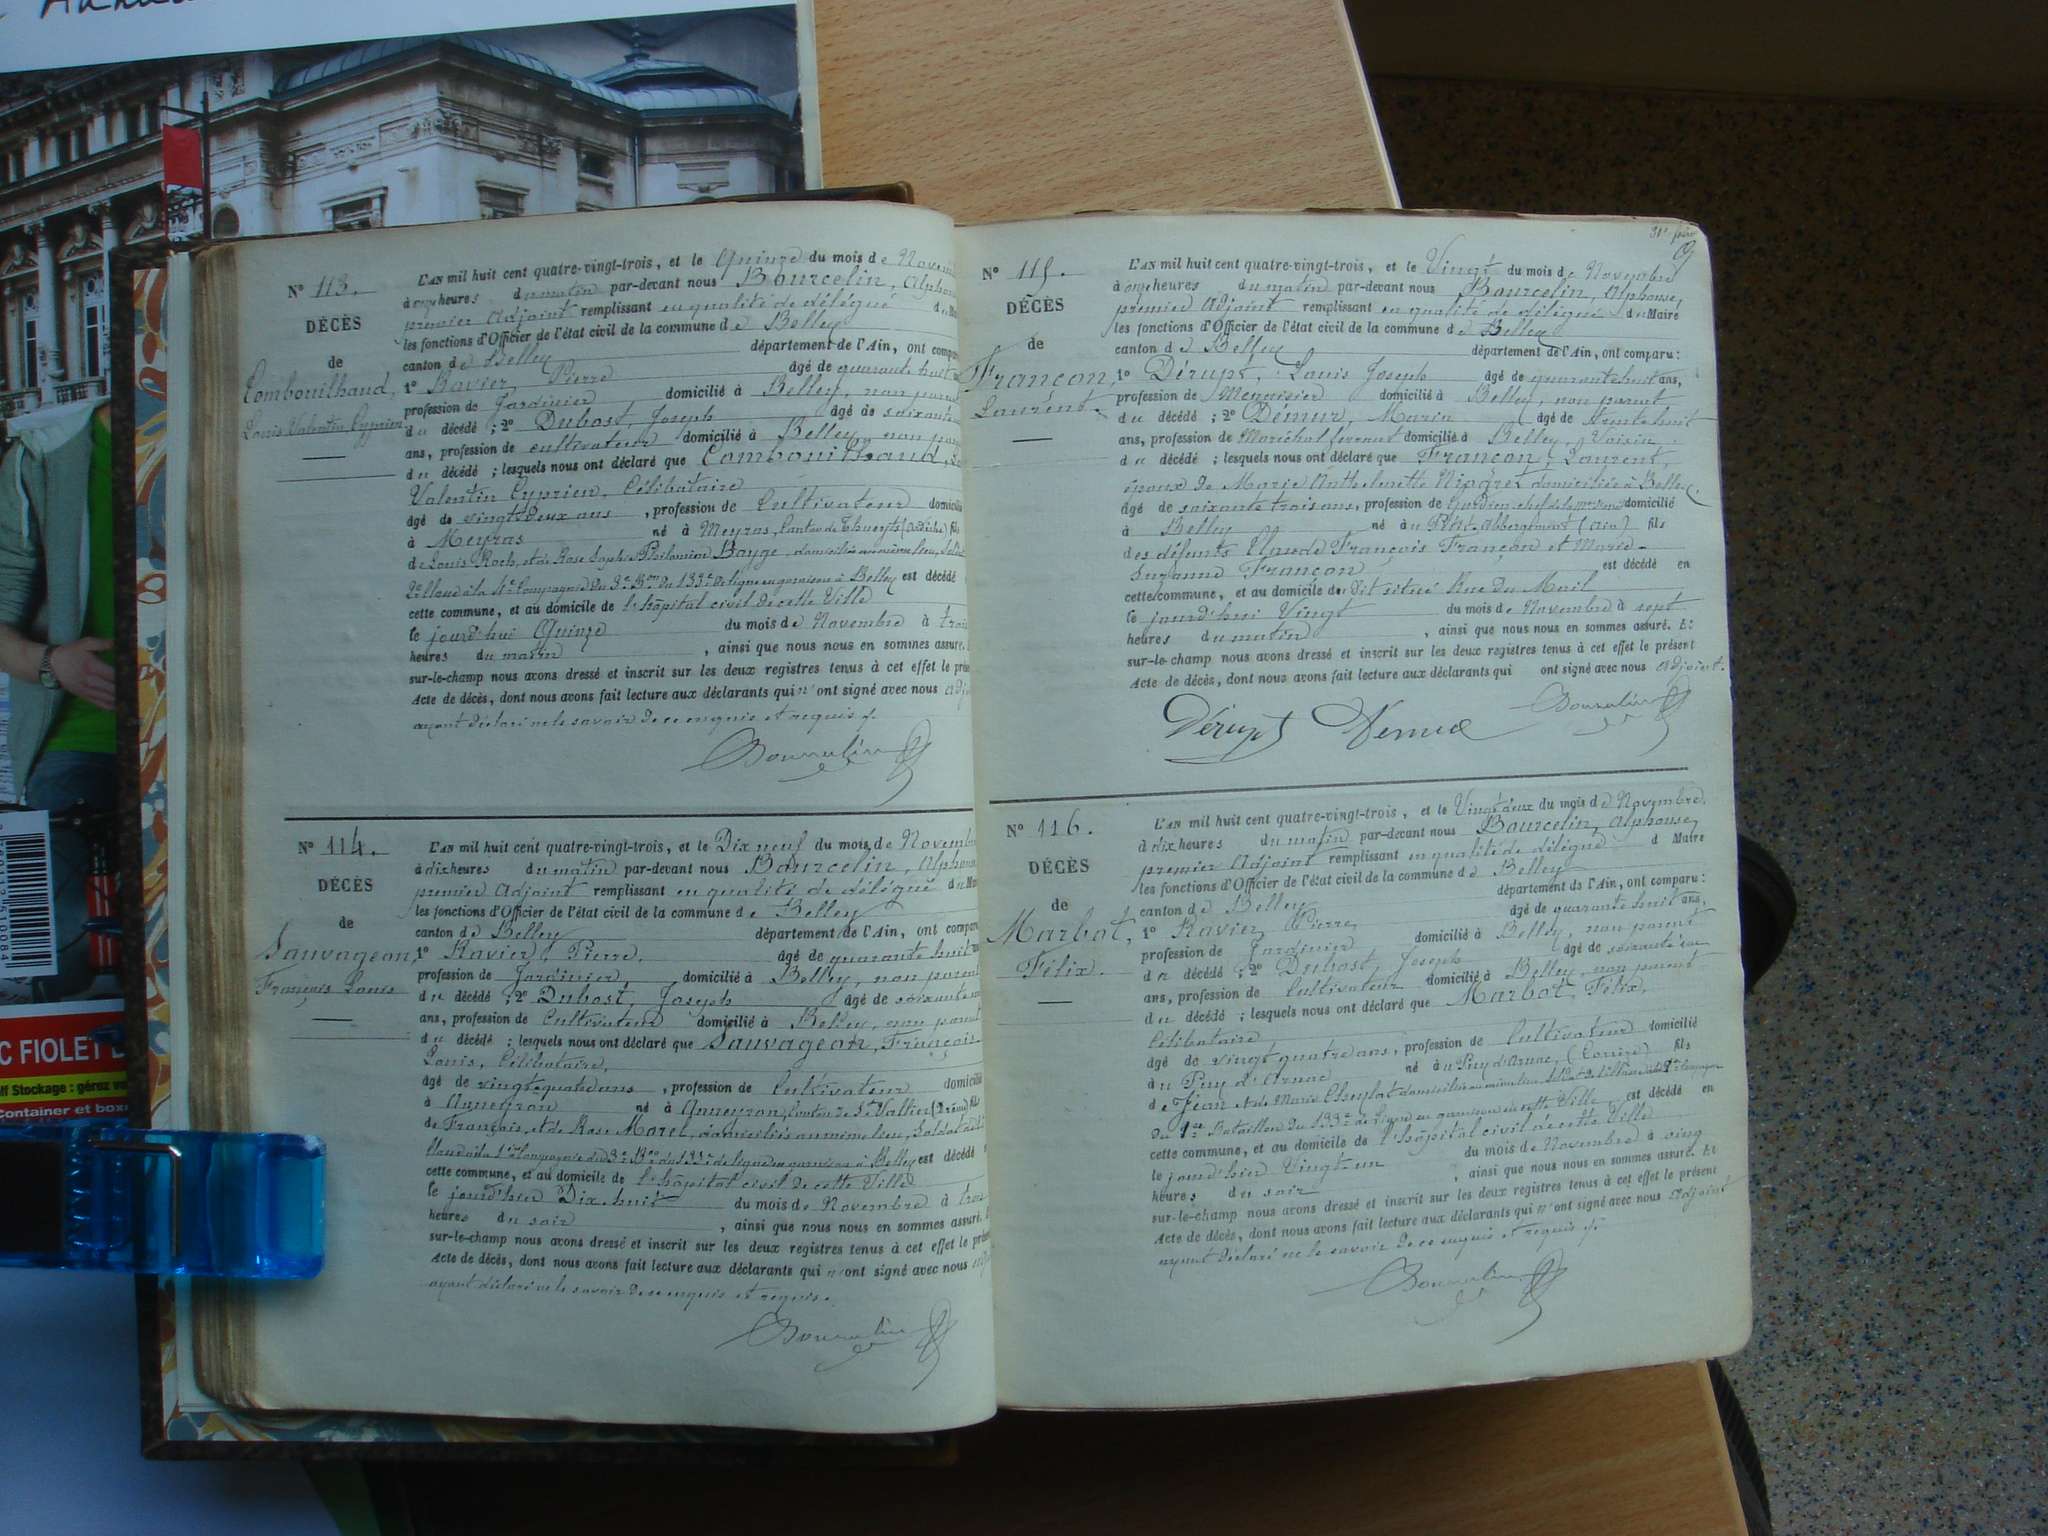 Nº 113.
DÉCÈS
de
Combouilhaud,
Louis Valentin Cyprien
L'AN mil huit cent quatre-vingt-trois, et le Quinze du mois de Novem
à onze heures du matin par-devant nous Bourcelin, Alphons
premier Adjoint remplissant en qualité de délégué du Ma
les fonctions d'Officier de l'état civil de la commune de Belley
canton de Belley département de l'Ain, ont compa
1º Ravier, Pierre âgé de quarante huit
profession de Jardinier domicilié à Belley, non paren
du décédé ; 2º Dubost, Joseph âgé de soixante
ans, profession de cultivateur domicilié à Belley, non paren
du décédé ; lesquels nous ont déclaré que Combouilhaud,
Valentin Cyprien, Célibataire
âgé de vingt deux ans, profession de Cultivateur domicilié
à Meyras né à Meyras, Canton de Thueyts (Ardèche) fils
de Louis Roch, et de Rose Sophie Philomène Bayge, domiciliés au même lieu,
2e classe à la 4e Compagnie du 3e Bon du 133e de ligne en garnison à Belley est décédé
cette commune, et au domicile de l'hôpital civil de cette Ville
le jourd'hui Quinze du mois de Novembre à trois
heures du matin, ainsi que nous nous en sommes assuré.
sur-le-champ nous avons dressé et inscrit sur les deux registres tenus à cet effet le prése
Acte de décès, dont nous avons fait lecture aux déclarants qui n'ont signé avec nous adj
ayant déclaré ne le savoir de ce enquis et requis.
Bourcelin
Nº 114.
DÉCÈS
de
Sauvageon,
François Louis
L'AN mil huit cent quatre-vingt-trois, et le Dix neuf du mois de Novembre
à dix heures du matin par-devant nous Bourcelin, Alphonse
premier Adjoint remplissant en qualité de délégué du Mai
les fonctions d'Officier de l'état civil de la commune de Belley
canton de Belley département de l'Ain, ont compa
1º Ravier, Pierre âgé de quarante huit
profession de Jardinier domicilié à Belley, non parent
du décédé ; 2º Dubost, Joseph âgé de soixante
ans, profession de Cultivateur domicilié à Belley, non parent
du décédé ; lesquels nous ont déclaré que Sauvageon, François
Louis, Célibataire,
âgé de vingt quatre ans, profession de Cultivateur domicilié
à Anneyron né à Anneyron, Canton de St Vallier (Drôme) fils
de François, et de Rose Morel, domiciliés au même lieu, Soldat de
classe à la 1re Compagnie du 3e Bon du 133e de ligne en garnison à Belley est décédé
cette commune, et au domicile de l'hôpital civil de cette Ville
le jourd'hier Dix-huit du mois de Novembre à trois
heures du soir, ainsi que nous nous en sommes assuré.
sur-le-champ nous avons dressé et inscrit sur les deux registres tenus à cet effet le présent
Acte de décès, dont nous avons fait lecture aux déclarants qui n'ont signé avec nous
ayant déclaré ne le savoir de ce enquis et requis.
Bourcelin
Nº 115.
DÉCÈS
de
Françon,
Laurent.
L'AN mil huit cent quatre-vingt-trois, et le Vingt du mois de Novembre
à onze heures du matin par-devant nous Bourcelin, Alphonse,
premier Adjoint remplissant en qualité de délégué du Maire
les fonctions d'Officier de l'état civil de la commune de Belley
canton de Belley département de l'Ain, ont comparu :
1º Dérupt, Louis Joseph âgé de quarante huit ans,
profession de Menuisier domicilié à Belley, non parent
du décédé ; 2º Démur, Marin âgé de trente huit
ans, profession de Maréchal ferrant domicilié à Belley, Voisin
du décédé ; lesquels nous ont déclaré que Françon, Laurent,
époux de Marie Anthelmette domiciliée à Belley,
âgé de soixante trois ans, profession de Gardien chef de la domicilié
à Belley né à Petit Abbergement (Ain) fils
des défunts Claude François Françon et Marie-
Suzanne Françon est décédé en
cette commune, et au domicile du dit situé Rue du Mail
le jourd'hui Vingt du mois de Novembre à sept
heures du matin, ainsi que nous nous en sommes assuré. Et
sur-le-champ nous avons dressé et inscrit sur les deux registres tenus à cet effet le présent
Acte de décès, dont nous avons fait lecture aux déclarants qui ont signé avec nous adjoint.
Dérupt Bourcelin
Nº 116.
DÉCÈS
de
Marbot,
Félix.
L'AN mil huit cent quatre-vingt-trois, et le Vingt deux du mois de Novembre
à dix heures du matin par-devant nous Bourcelin, Alphonse,
premier Adjoint remplissant en qualité de délégué d Maire
les fonctions d'Officier de l'état civil de la commune de Belley
canton de Belley département de l'Ain, ont comparu :
1º Ravier, Pierre âgé de quarante huit ans,
profession de Jardinier domicilié à Belley, non parent
du décédé ; 2º Dubost, Joseph âgé de soixante un
ans, profession de Cultivateur domicilié à Belley, non parent
du décédé ; lesquels nous ont déclaré que Marbot, Félix,
Célibataire,
âgé de vingt quatre ans, profession de Cultivateur domicilié
à Puy d'Arnac né à Puy d'Arnac, (Corrèze) fils
de Jean et de Marie domiciliés au même lieu, Soldat de classe à la Compagnie
du Bataillon du 133e de ligne en garnison en cette Ville est décédé en
cette commune, et au domicile de l'hôpital civil de cette Ville
le jourd'hier Vingt-un du mois de Novembre à cinq
heures du soir, ainsi que nous nous en sommes assuré. Et
sur-le-champ nous avons dressé et inscrit sur les deux registres tenus à cet effet le présent
Acte de décès, dont nous avons fait lecture aux déclarants qui n'ont signé avec nous adjoint
ayant déclaré ne le savoir de ce enquis et requis.
Bourcelin
C FIOLET
Stockage : gérez
Container et box